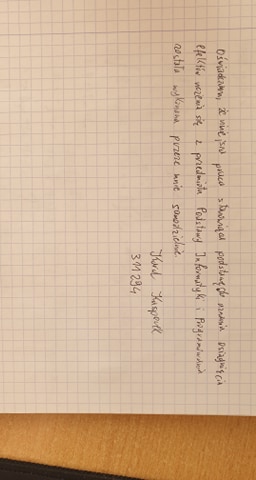 Oświadczam, że niniejsza praca stanowiąca podstawę do uznania osiągnięcia
efektów uczenia się z przedmiotu Podstawy Informatyki i Programowania
została wykonana przeze mnie samodzielnie.
Karol
311294